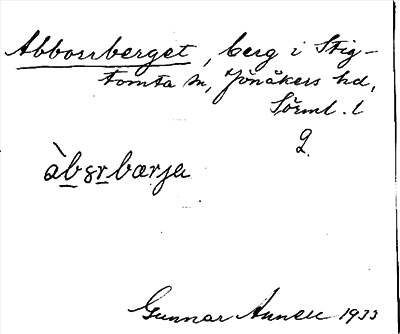 Abborrberget, berg i Stig-
tomta sn, Jönåkers hd,
Sörml. l
2.
àbɞrbærja
Gunnar 1933